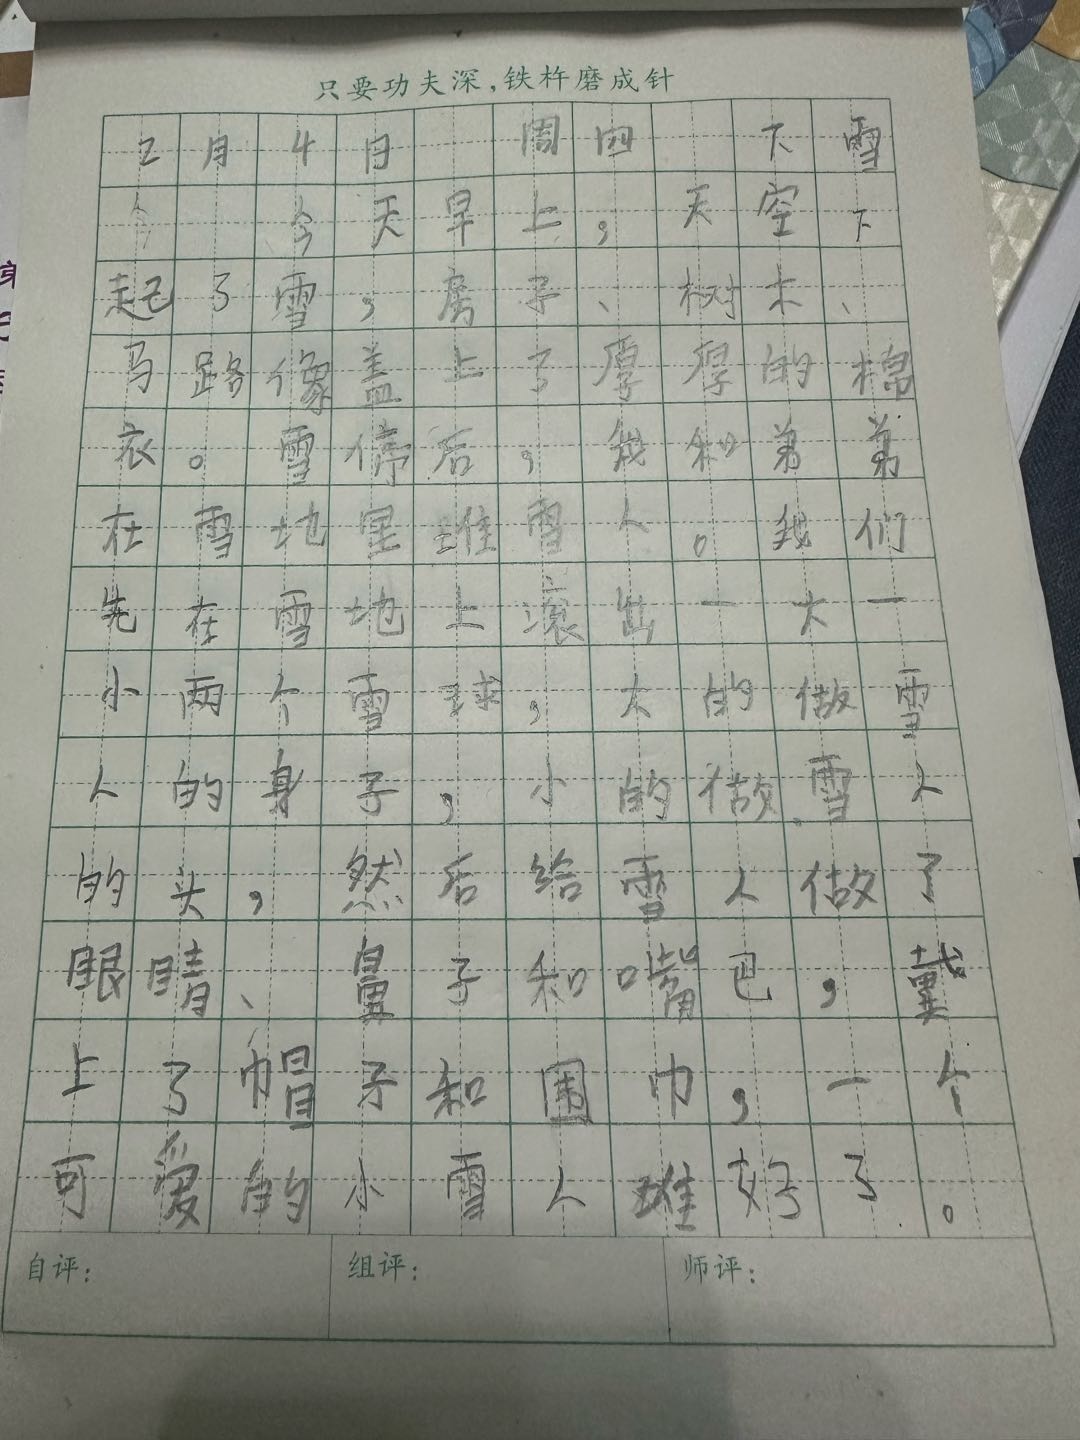 只要功夫深,铁杵磨成针
2月4日 周四 下雪
今 今天早上，天空下
起了雪，房子、树木、
马路像盖上了厚厚的棉
衣。雪停后，我和弟弟
在雪地里堆雪人。我们
先在雪地上滚出一大一
小两个雪球，大的做雪
人的身子，小的做雪人
的头，然后给雪人做了
眼睛、鼻子和嘴巴，戴
上了帽子和围巾，一个
可爱的小雪人堆好了。
自评: 组评: 师评: